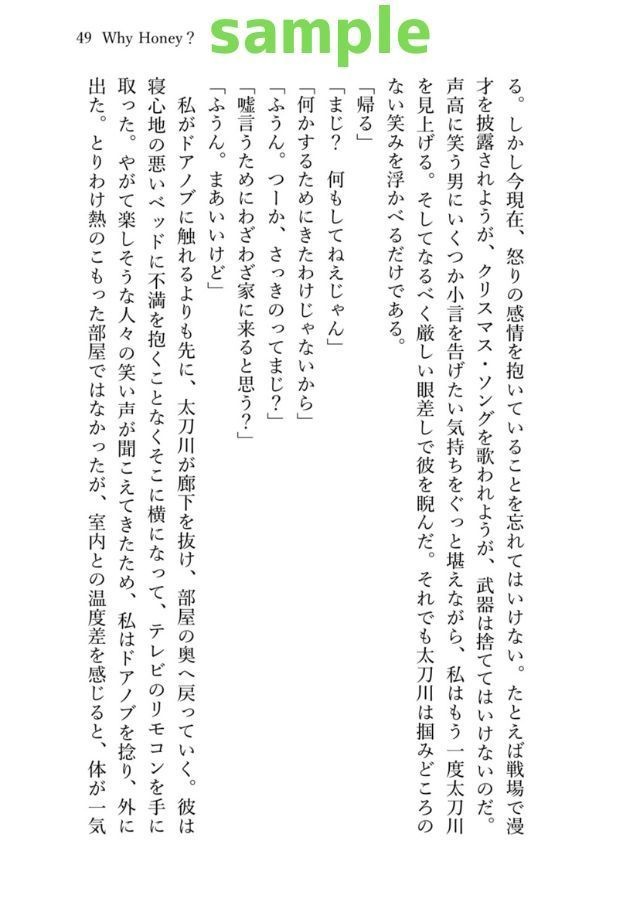 49 Why Honey?
sample
る。しかし今現在、怒りの感情を抱いていることを忘れてはいけない。たとえば戦場で漫
才を披露されようが、クリスマス・ソングを歌われようが、武器は捨ててはいけないのだ。
声高に笑う男にいくつか小言を告げたい気持ちをぐっと堪えながら、私はもう一度太刀川
を見上げる。そしてなるべく厳しい眼差しで彼を睨んだ。それでも太刀川は掴みどころの
ない笑みを浮かべるだけである。
「帰る」
「まじ？　何もしてねえじゃん」
「何かするためにきたわけじゃないから」
「ふうん。つーか、さっきのってまじ？」
「嘘言うためにわざわざ家に来ると思う？」
「ふうん。まあいいけど」
私がドアノブに触れるよりも先に、太刀川が廊下を抜け、部屋の奥へ戻っていく。彼は
寝心地の悪いベッドに不満を抱くことなくそこに横になって、テレビのリモコンを手に
取った。やがて楽しそうな人々の笑い声が聞こえてきたため、私はドアノブを捻り、外に
出た。とりわけ熱のこもった部屋ではなかったが、室内との温度差を感じると、体が一気